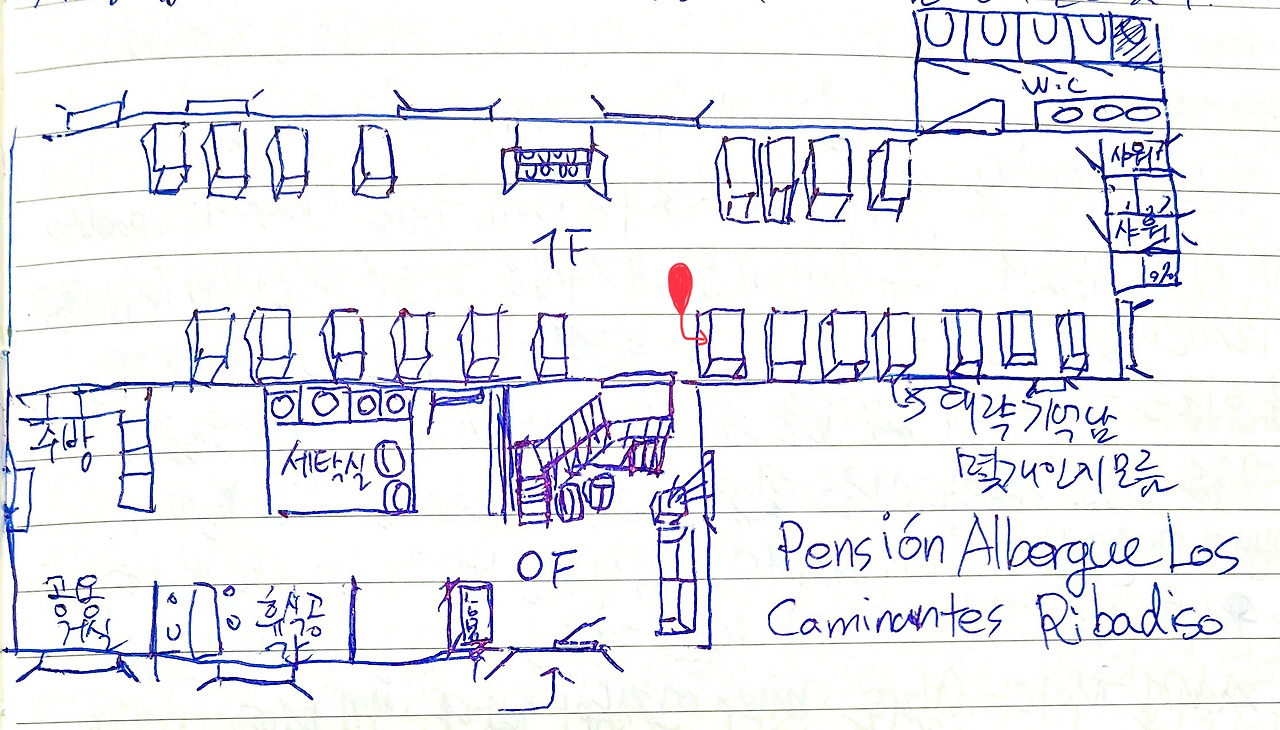 W.C
샤워
샤워
1F
주방
세탁실
대략 기억남
몇개인지 모름
0F
Pensión Albergue Los
Caminantes Ribadiso
공용
거실
휴식공
간